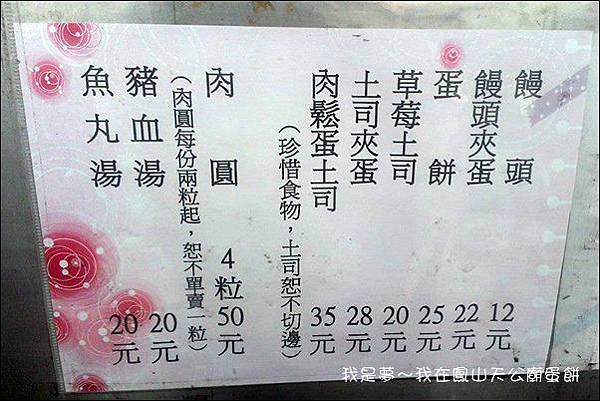 饅頭 12元
饅頭夾蛋 22元
蛋餅 25元
草莓土司 20元
土司夾蛋 28元
肉鬆蛋土司 35元
（珍惜食物，土司恕不切邊）
肉圓 4粒50元
（肉圓每份兩粒起，恕不單賣一粒）
豬血湯 20元
魚丸湯 20元
我是夢～我在鳳山天公廟蛋餅